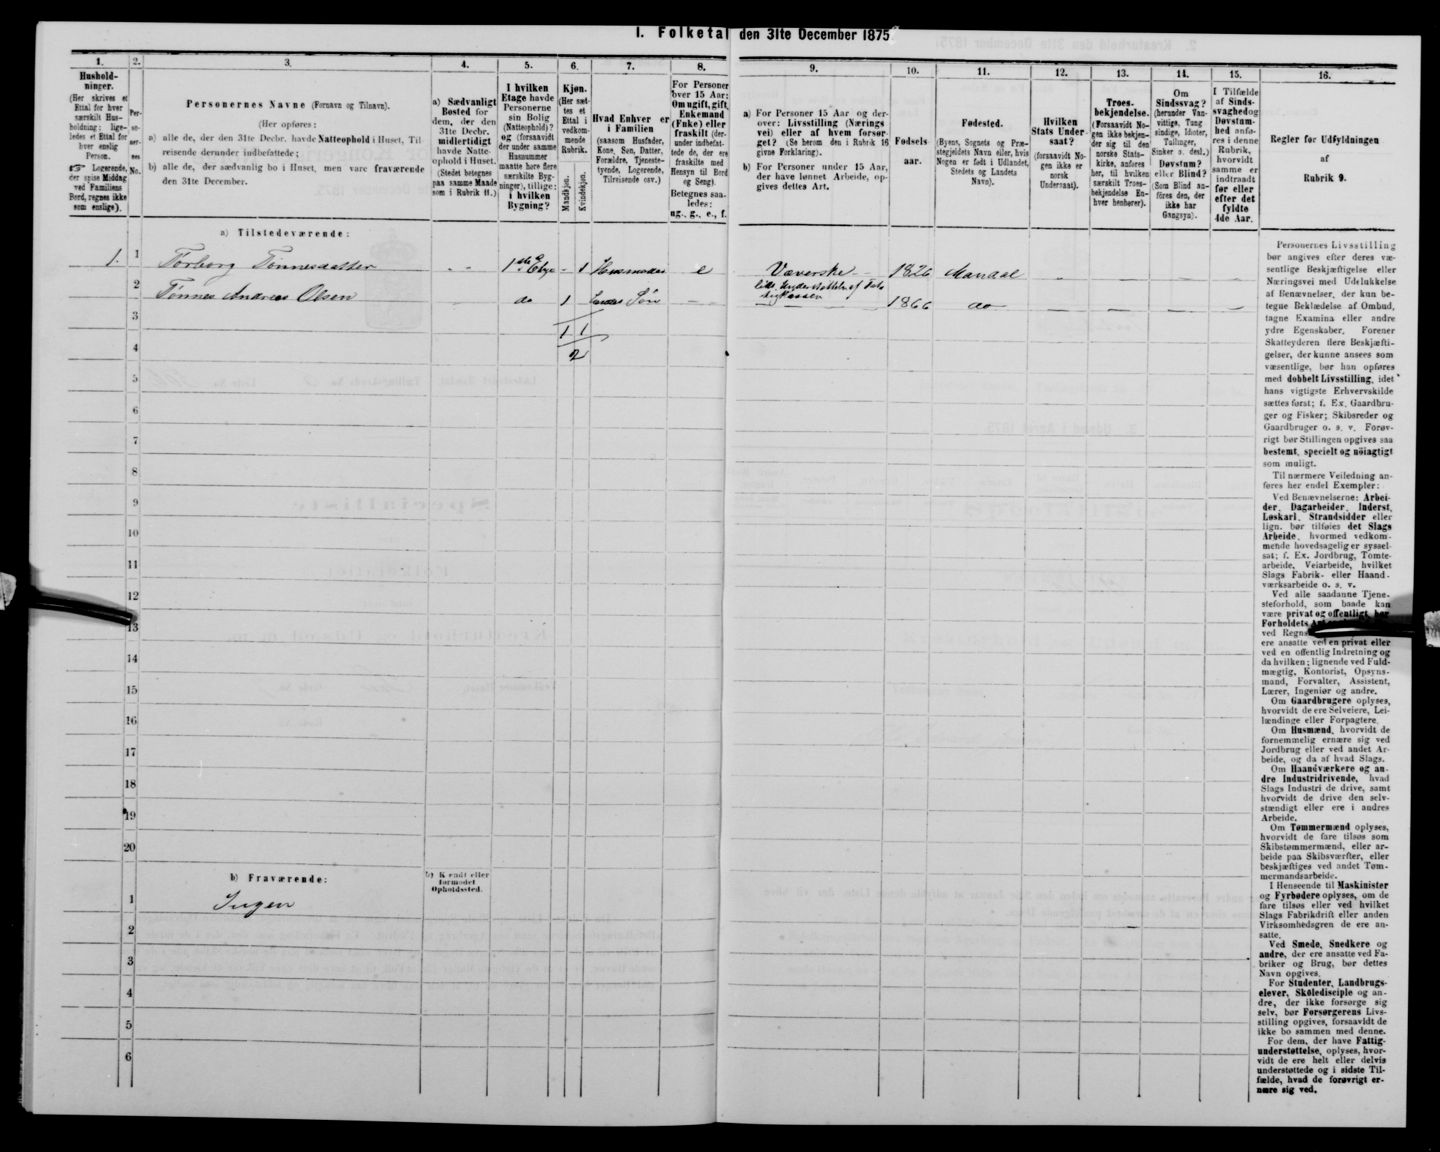 1. Folketal den 31te December 1875
1.
Hushold-
ninger.
(Her skrives et
Ettal for hver
særskilt Hus-
holdning; lige-
ledes et Ettal for
hver enslig
Person.
☞ Logerende,
der spise Middag
ved Familiens
Bord, regnes ikke
som enslige).
2.
Per-
so-
ner-
nes
No.
3.
Personernes Navne (Fornavn og Tilnavn).
(Her opføres:
a) alle de, der den 31te Decbr. havde Natteophold i Huset, Til-
reisende derunder indbefattede;
b) alle de, der sædvanlig bo i Huset, men vare fraværende
den 31te December.
4.
a) Sædvanligt
Bosted for
dem, der den
31te Decbr.
midlertidigt
havde Natte-
ophold i Huset.
(Stedet betegnes
paa samme Maade
som i Rubrik 11.)
5.
I hvilken
Etage havde
Personerne
sin Bolig
(Natteophold)?
og (forsaavidt
der under samme
Husnummer
maatte høre flere
særskilte Byg-
ninger), tillige:
i hvilken
Bygning?
6.
Kjøn.
(Her sæt-
tes et
Ettal i
vedkom-
mende
Rubrik.
Mandkjøn.
Kvindekjøn.
7.
Hvad Enhver er
i Familien
(saasom Husfader,
Kone, Søn, Datter,
Forældre, Tjeneste-
tyende, Logerende,
Tilreisende osv.).
8.
For Personer
over 15 Aar:
Om ugift, gift,
Enkemand
(Enke) eller
fraskilt (der-
under indbefat-
tede de, der ere
fraskilte med
Hensyn til Bord
og Seng).
Betegnes saa-
ledes:
ug., g., e., f.
9.
a) For Personer 15 Aar og der-
over: Livsstilling (Nærings-
vei) eller af hvem forsør-
get? (Se herom den i Rubrik 16
givne Forklaring).
b) For Personer under 15 Aar,
der have lønnet Arbeide, op-
gives dettes Art.
10.
Fødsels-
aar.
11.
Fødested.
(Byens, Sognets og Præ-
stegjeldets Navn eller, hvis
Nogen er født i Udlandet,
Stedets og Landets
Navn).
12.
Hvilken
Stats Under-
saat?
(forsaavidt No-
gen ikke er
norsk
Undersaat).
13.
Troes-
bekjendelse.
(Forsaavidt No-
gen ikke bekjen-
der sig til den
norske Stats-
kirke, anføres
her, til hvilken
særskilt Troes-
bekjendelse En-
hver henhører).
14.
Om
Sindssvag?
(herunder Van-
vittige, Tung-
sindige, Idioter,
Tullinger,
Sinker o. desl.)
Døvstum?
eller Blind?
(Som Blind an-
føres den, der
ikke har
Gangsyn).
15.
I Tilfælde
af Sinds-
svaghed og
Døvstum-
hed anfø-
res i denne
Rubrik,
hvorvidt
samme er
indtraadt
før eller
efter det
fyldte
4de Aar.
16.
Regler for Udfyldningen
af
Rubrik 9.
a) Tilstedeværende:
1. 1 Torborg Tønnesdatter - - 1ste Etage - 1 Husmoder e Væverske - 1826 Mandal - - - -
lidt Understøttelse af Fat-
tigkassen
2 Tønnes Andreas Olsen do 1 Søn - 1866 do - - - -
3 1 1
4 2
5
6
7
8
9
10
11
12
13
14
15
16
17
18
19
20
b) Fraværende:
b) Kjendt eller
formodet
Opholdssted.
1 Ingen
2
3
4
5
6
Personernes Livsstilling
bør angives efter deres væ-
sentlige Beskjæftigelse eller
Næringsvei med Udelukkelse
af Benævnelser, der kun be-
tegne Beklædelse af Ombud,
tagne Examina eller andre
ydre Egenskaber. Forener
Skatteyderen flere Beskjæfti-
gelser, der kunne ansees som
væsentlige, bør han opføres
med dobbelt Livsstilling, idet
hans vigtigste Erhvervskilde
sættes først; f. Ex. Gaardbru-
ger og Fisker; Skibsreder og
Gaardbruger o. s. v. Forøv-
rigt bør Stillingen opgives saa
bestemt, specielt og nöiagtigt
som muligt.
Til nærmere Veiledning an-
føres her endel Exempler:
Ved Benævnelserne: Arbei-
der, Dagarbeider, Inderst,
Løskarl, Strandsidder eller
lign. bør tilføies det Slags
Arbeide, hvormed vedkom-
mende hovedsagelig er syssel-
sat; f. Ex. Jordbrug, Tomte-
arbeide, Veiarbeide, hvilket
Slags Fabrik- eller Haand-
værksarbeide o. s. v.
Ved alle saadanne Tjene-
steforhold, som baade kan
være privat og offentligt, bør
Forholdets
ved Regns
ere ansatte ved en privat eller
ved en offentlig Indretning og
da hvilken; lignende ved Fuld-
mægtig, Kontorist, Opsyns-
mand, Forvalter, Assistent,
Lærer, Ingeniør og andre.
Om Gaardbrugere oplyses,
hvorvidt de ere Selveiere, Lei-
lændinge eller Forpagtere.
Om Husmænd, hvorvidt de
fornemmelig ernære sig ved
Jordbrug eller ved andet Ar-
beide, og da af hvad Slags.
Om Haandværkere og an-
dre Industridrivende, hvad
Slags Industri de drive, samt
hvorvidt de drive den selv-
stændigt eller ere i andres
Arbeide.
Om Tømmermænd oplyses,
hvorvidt de fare tilsøs som
Skibstømmermænd, eller ar-
beide paa Skibsværfter, eller
beskjæftiges ved andet Tøm-
mermandsarbeide.
I Henseende til Maskinister
og Fyrbødere oplyses, om de
fare tilsøs eller ved hvilket
Slags Fabrikdrift eller anden
Virksomhedsgren de ere an-
satte.
Ved Smede, Snedkere og
andre, der ere ansatte ved Fa-
briker og Brug, bør dettes
Navn opgives.
For Studenter, Landbrugs-
elever, Skoledisciple og an-
dre, der ikke forsørge sig
selv, bør Forsørgerens Livs-
stilling opgives, forsaavidt de
ikke bo sammen med denne.
For dem, der have Fattig-
understøttelse, oplyses, hvor-
vidt de ere helt eller delvis
understøttede og i sidste Til-
fælde, hvad de forøvrigt er-
nære sig ved.